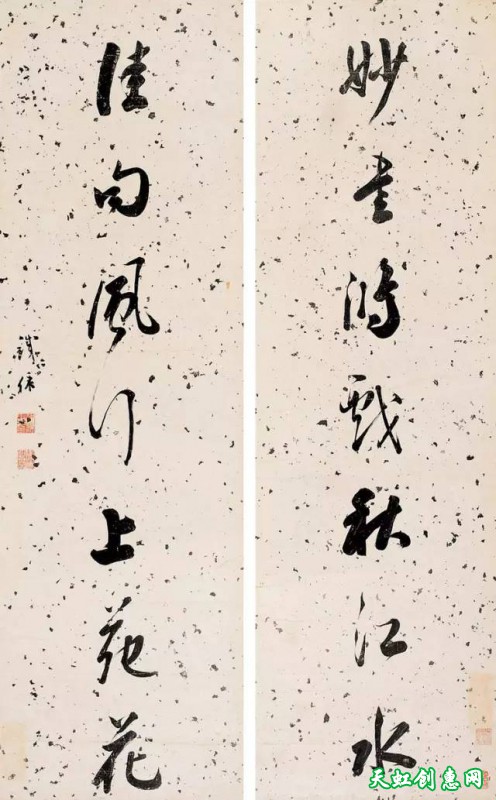 妙書鴻戲秋江水
佳句風行上苑花
鐵保
天虹创意网